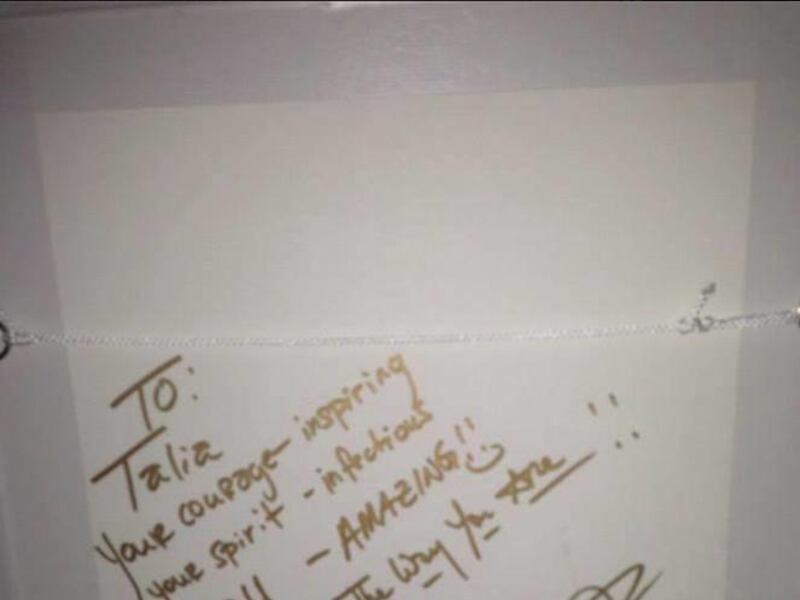 To:
Talia
Your courage - inspiring
your spirit - infectious
- AMAZING!!
The Way You Are!!